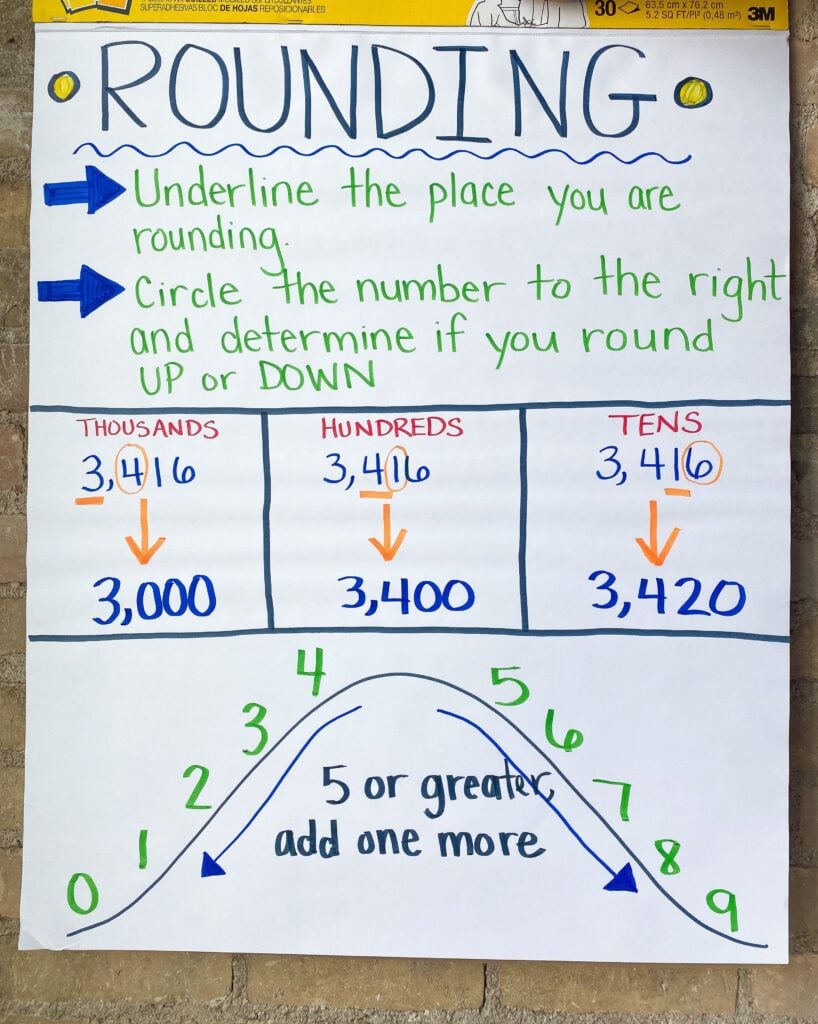 SUPERADHESIVAS BLOC DE HOJAS REPOSICIONABLES
30
63,5 cm x 76,2 cm
5.2 SQ FT/PI² (0,48 m²)
3M
ROUNDING
Underline the place you are
rounding.
Circle the number to the right
and determine if you round
UP or DOWN
THOUSANDS HUNDREDS TENS
3,416 3,416 3,416
3,000 3,400 3,420
4 5
3 6
2 5 or greater, 7
1 add one more 8
0 9